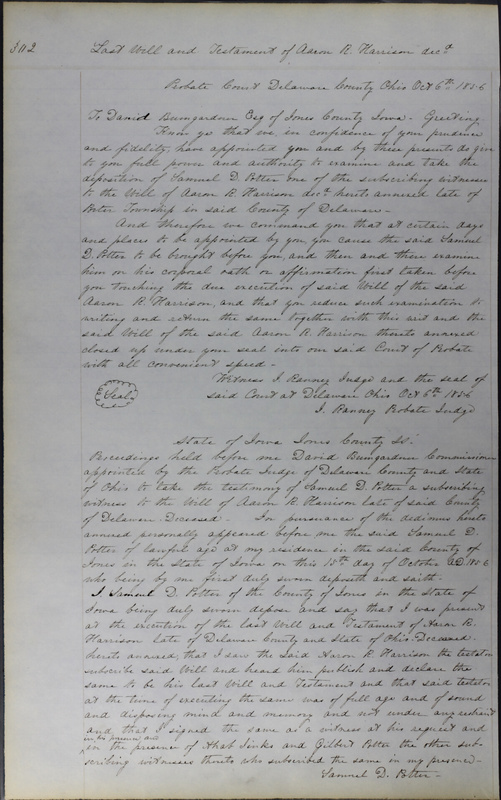 302
Last Will and Testament of Aaron R. Harrison decd
Probate Court Delaware County Ohio Oct 6th 1856
To David Bumgardner Esq of Jones County Iowa - Greeting
Know ye that we, in confidence of your prudence
and fidelity, have appointed you and by these presents do give
to you full power and authority to examine and take the
deposition of Samuel D. Potter one of the subscribing witnesses
to the Will of Aaron R Harrison decd hereto annexed late of
Porter Township in said County of Delaware -
And therefore we command you that at certain days
and places to be appointed by you, you cause the said Samuel
D. Potter to be brought before you, and then and there examine
him on his corporal oath or affirmation first taken before
you touching the due execution of said Will of the said
Aaron R. Harrison, and that you reduce such examination to
writing and return the same together with this writ and the
said Will of the said Aaron R. Harrison thereto annexed
closed up under your seal into our said Court of Probate
with all convenient speed -
Witness I. Ranney Judge and the seal of
Seal
said Court at Delaware Ohio Oct 6th 1856
I. Ranney Probate Judge
State of Iowa Jones County SS:
Proceedings held before me David Bumgardner Commissioner
appointed by the Probate Judge of Delaware County and State
of Ohio to take the testimony of Samuel D. Potter a subscribing
witness to the Will of Aaron R. Harrison late of said County
of Delaware Deceased - In pursuance of the dedimus hereto
annexed personally appeared before me the said Samuel D.
Potter of lawful age at my residence in the said County of
Jones in the State of Iowa on this 15th day of October AD. 1856
who being by me first duly sworn deposeth and saith
I Samuel D. Potter of the County of Jones in the State of
Iowa being duly sworn depose and say that I was present
at the execution of the last Will and Testament of Aaron R.
Harrison late of Delaware County and State of Ohio Deceased
hereto annexed, that I saw the said Aaron R Harrison the testator
subscribe said Will and heard him publish and declare the
same to be his last Will and Testament and that said testator
at the time of executing the same was of full age and of sound
and disposing mind and memory and not under any restraint
and that I signed the same as a witness at his request and
in his presence and
in the presence of Ahab Jinks and Gilbert Potter the other sub-
scribing witnesses thereto who subscribed the same in my presence -
Samuel D. Potter -